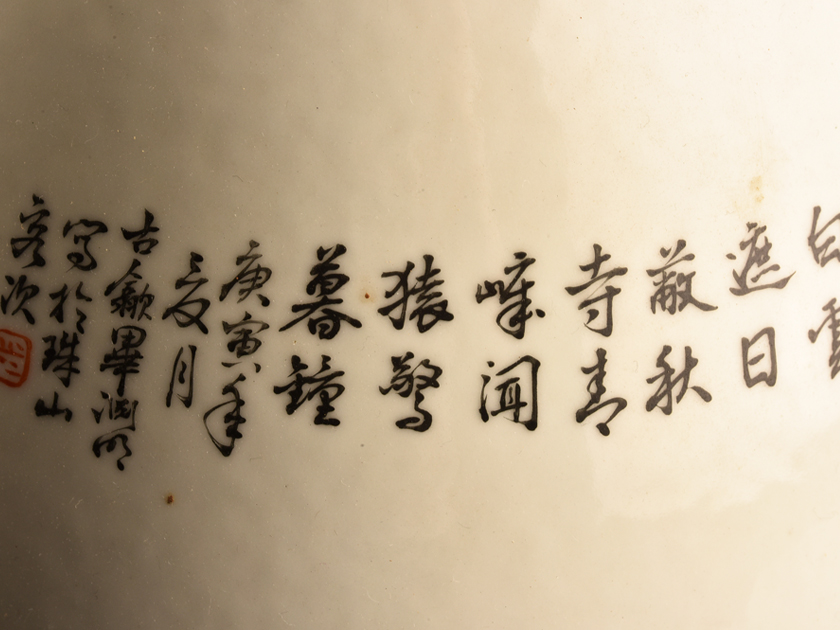 白雲
遮日
蔽秋
寺青
嶂聞
猿驚
暮鐘
庚寅年
夏月
古歙畢淵明
寫於珠山
客次